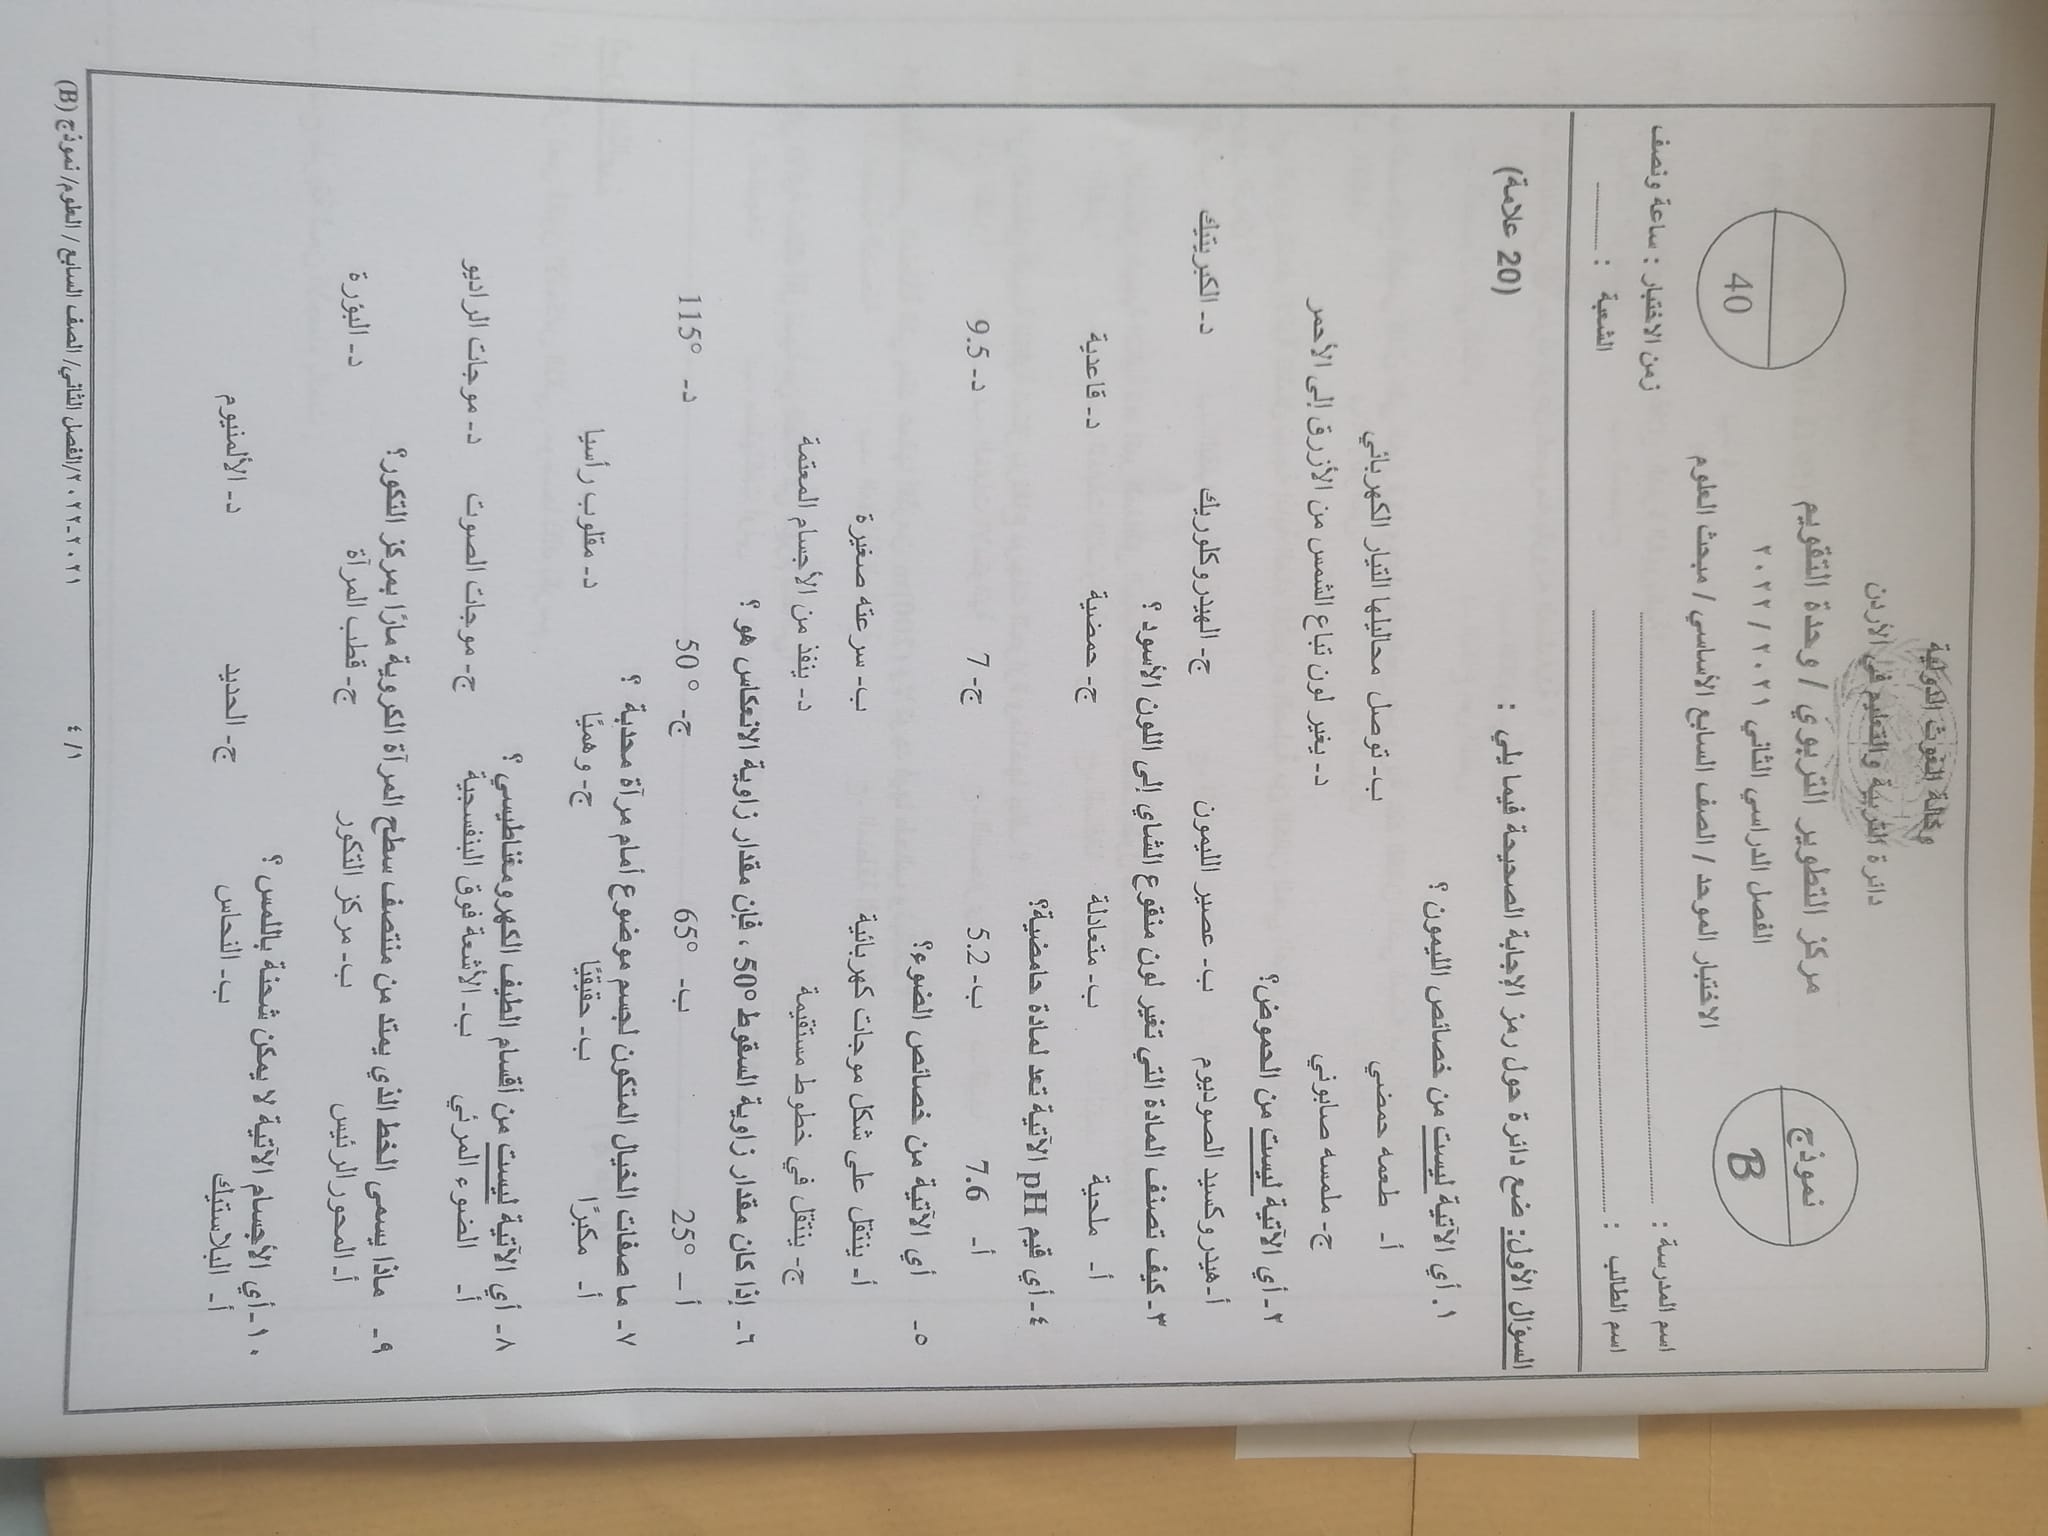 وكالة الغوث الدولية
دائرة التربية والتعليم في الأردن
مركز التطوير التربوي / وحدة التقويم
الفصل الدراسي الثاني ٢٠٢١ / ٢٠٢٢
الاختبار الموحد / الصف السابع الأساسي / مبحث العلوم
نموذج
B
40
اسم المدرسة : زمن الاختبار : ساعة ونصف
اسم الطالب : الشعبة :
السؤال الأول: ضع دائرة حول رمز الإجابة الصحيحة فيما يلي : (20 علامة)
١. أي الآتية ليست من خصائص الليمون ؟
أ- طعمه حمضي ب- توصل محاليلها التيار الكهربائي
ج- ملمسه صابوني د- يغير لون تباع الشمس من الأزرق إلى الأحمر
٢- أي الآتية ليست من الحموض؟
أ- هيدروكسيد الصوديوم ب- عصير الليمون ج- الهيدروكلوريك د- الكبريتيك
٣- كيف تصنف المادة التي تغير لون منقوع الشاي إلى اللون الأسود ؟
أ- ملحية ب- متعادلة ج- حمضية د- قاعدية
٤- أي قيم pH الآتية تعد لمادة حامضية؟
أ- 7.6 ب- 5.2 ج- 7 د- 9.5
٥- أي الآتية من خصائص الضوء؟
أ- ينتقل على شكل موجات كهربائية ب- سرعته صغيرة
ج- ينتقل في خطوط مستقيمة د- ينفذ من الأجسام المعتمة
٦- إذا كان مقدار زاوية السقوط 50° ، فإن مقدار زاوية الانعكاس هو ؟
أ – 25° ب- 65° ج- 50° د- 115°
٧- ما صفات الخيال المتكون لجسم موضوع أمام مرآة محدبة ؟
أ- مكبرًا ب- حقيقيًا ج- وهميًا د- مقلوب رأسيا
٨- أي الآتية ليست من أقسام الطيف الكهرومغناطيسي ؟
أ- الضوء المرئي ب- الأشعة فوق البنفسجية ج- موجات الصوت د- موجات الراديو
٩- ماذا يسمى الخط الذي يمتد من منتصف سطح المرآة الكروية مارًا بمركز التكور؟
أ- المحور الرئيس ب- مركز التكور ج- قطب المرآة د- البؤرة
١٠- أي الأجسام الآتية لا يمكن شحنة باللمس ؟
أ- البلاستيك ب- النحاس ج- الحديد د- الألمنيوم
٤/١ ٢٠٢١-٢٠٢٢/الفصل الثاني/ الصف السابع/ العلوم/ نموذج (B)